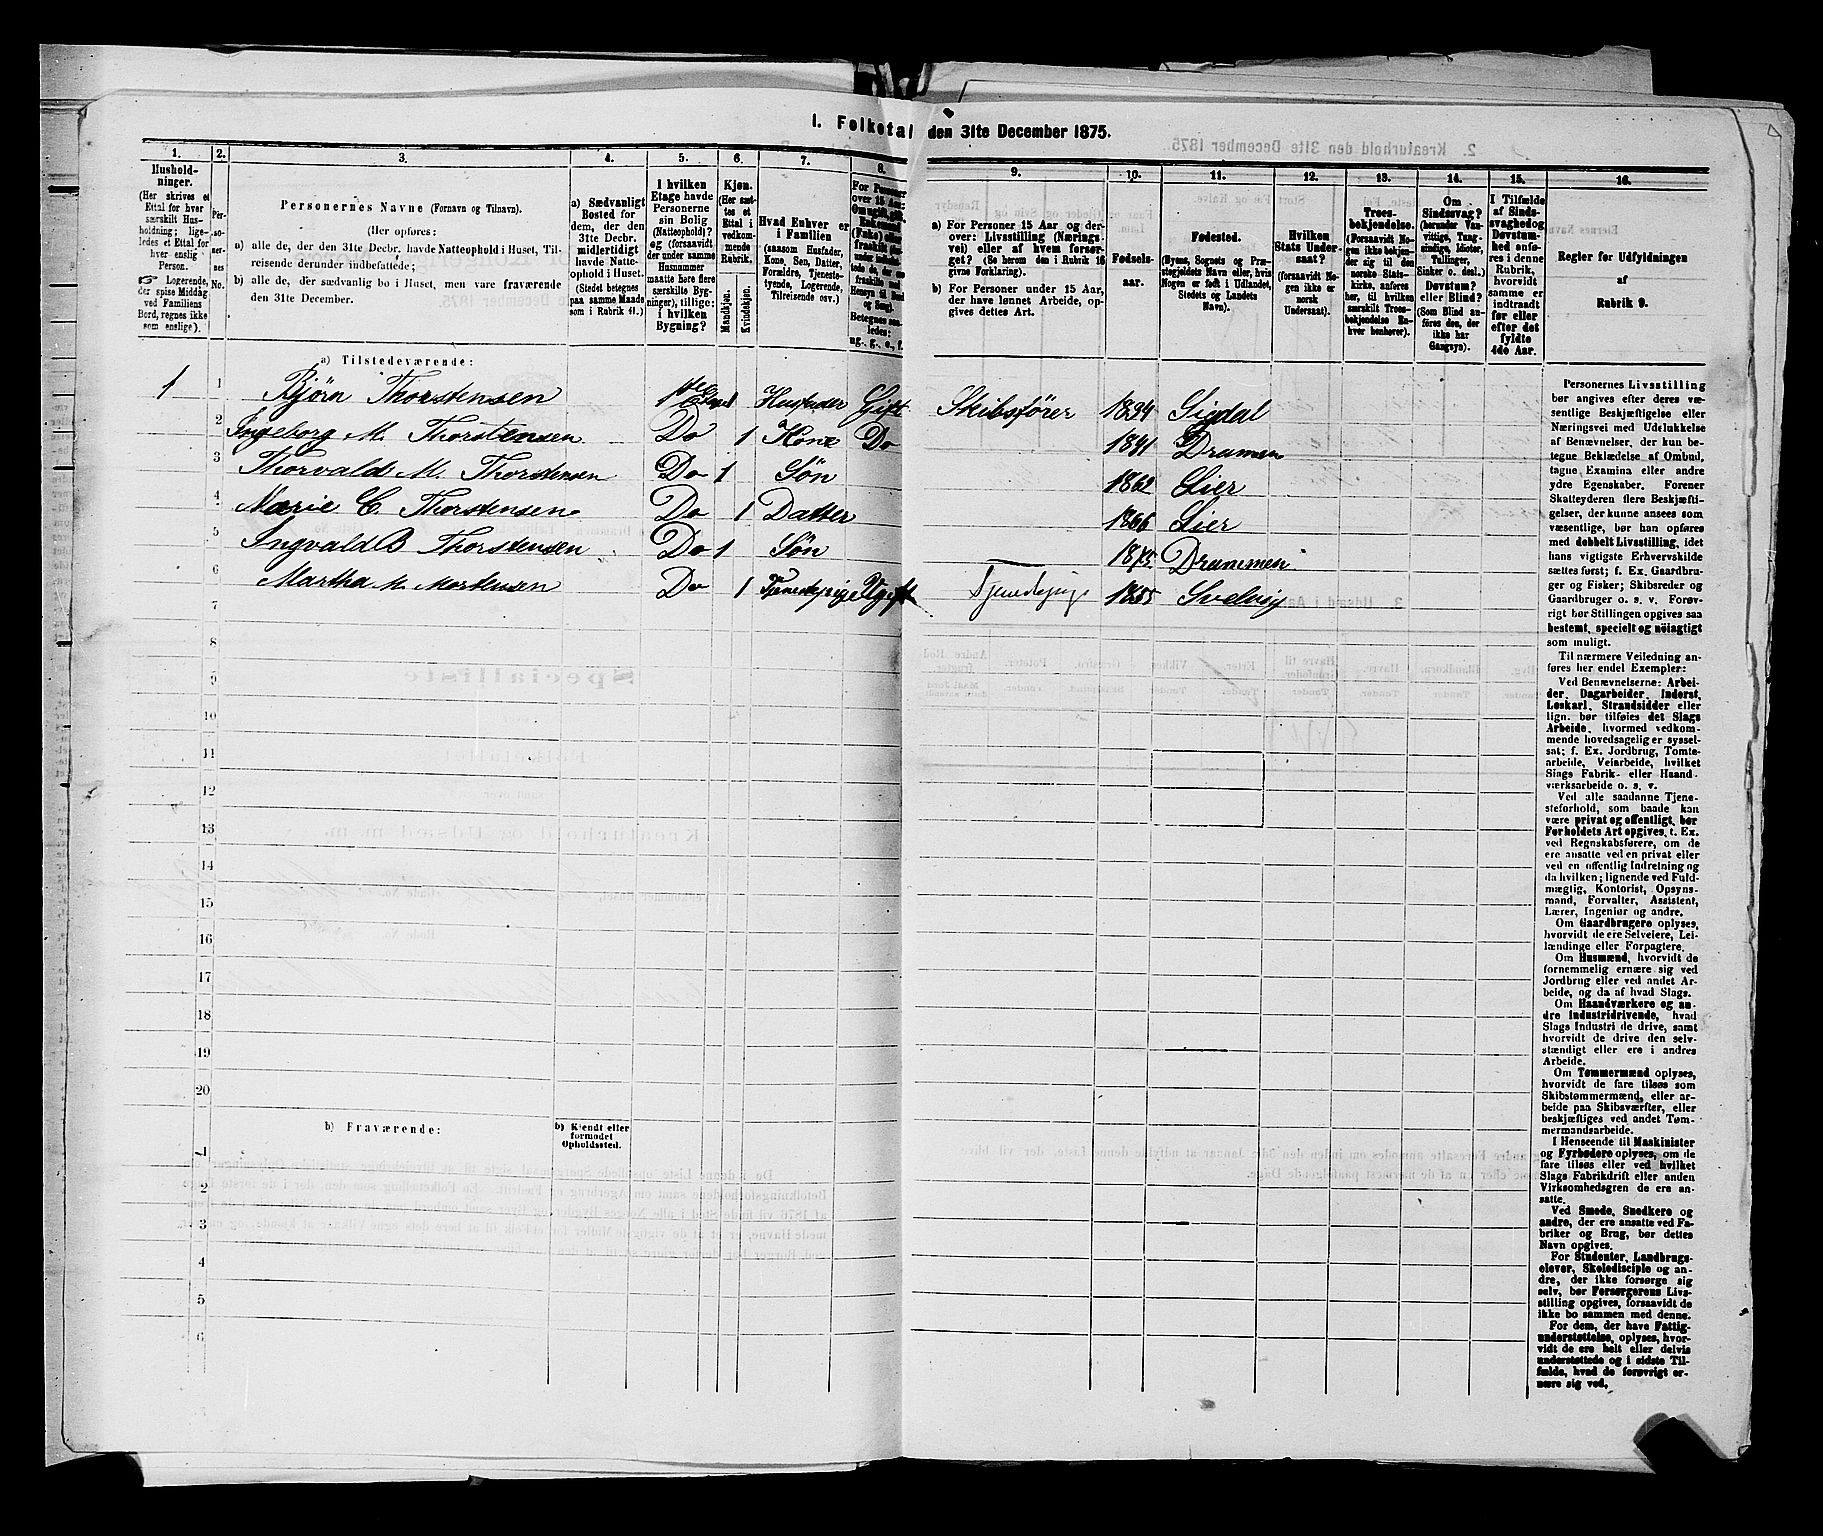 I. Folketal den 31te December 1875.
1. 2. 3. 4. 5. 6. 7. 8. 9. 10. 11. 12. 13. 14. 15. 16.
Husholdninger.
(Her skrives et
Ettal for hver
særskilt Husholdning;
ligeledes et Ettal for
hver enslig
Person.
☞ Logerende,
der spise Middag
ved Familiens
Bord, regnes ikke
som enslige).
Personernes No.
Personernes Navne (Fornavn og Tilnavn).
(Her opføres:
a) alle de, der den 31te Decbr. havde Natteophold i Huset, Tilreisende
derunder indbefattede;
b) alle de, der sædvanlig bo i Huset, men vare fraværende
den 31te December.
a) Sædvanligt
Bosted for
dem, der den
31te Decbr.
midlertidigt
havde Natteophold
i Huset.
(Stedet betegnes
paa samme Maade
som i Rubrik 11.)
I hvilken
Etage havde
Personerne
sin Bolig
(Natteophold)?
og (forsaavidt
der under samme
Husnummer
maatte høre flere
særskilte Bygninger),
tillige:
i hvilken
Bygning?
Kjøn.
(Her sættes
et
Ettal i
vedkommende
Rubrik.
Mandkjøn.
Kvindekjøn.
Hvad Enhver er
i Familien
(saasom Husfader,
Kone, Søn, Datter,
Forældre, Tjenestetyende,
Logerende,
Tilreisende osv.)
For Personer
over 15 Aar:
ug., g., e., f.
a) For Personer 15 Aar og derover:
Livsstilling (Næringsvei)
eller af hvem forsørget?
(Se herom den i Rubrik 16
givne Forklaring).
b) For Personer under 15 Aar,
der have lønnet Arbeide, opgives
dettes Art.
Fødselsaar.
Fødested.
(Byens, Sognets og Præstegjeldets
Navn eller, hvis
Nogen er født i Udlandet,
Stedets og Landets
Navn).
Hvilken
Stats Undersaat?
(forsaavidt Nogen
ikke er
norsk
Undersaat).
Troesbekjendelse.
(Forsaavidt Nogen
ikke bekjender
sig til den
norske Statskirke,
anføres
her, til hvilken
særskilt Troesbekjendelse
Enhver
henhører).
Om
Sindssvag?
(herunder Vanvittige,
Tungsindige,
Idioter,
Tullinger,
Sinker o. desl.)
Døvstum?
eller Blind?
(Som Blind anføres
den, der
ikke har
Gangsyn).
I Tilfælde
af Sindssvaghed
og
Døvstumhed
anføres
i denne
Rubrik,
hvorvidt
samme er
indtraadt
før eller
efter det
fyldte
4de Aar.
Regler for Udfyldningen
af
Rubrik 9.
a) Tilstedeværende:
1 1 Bjørn Thorstensen 1ste Etage 1 Husfader Gift Skibsfører 1834 Sigdal
2 Ingeborg M. Thorstensen Do 1 Kone Do 1841 Dramen
3 Thorvald M. Thorstensen Do 1 Søn 1862 Lier
4 Marie C. Thorstensen Do 1 Datter 1866 Lier
5 Ingvald B Thorstensen Do 1 Søn 1875 Drammen
6 Martha M Mortensen Do 1 Tjenestepige Ugift Tjenestepige 1855 Svelvig
7
8
9
10
11
12
13
14
15
16
17
18
19
20
b) Fraværende:
b) Kjendt eller
formodet
Opholdssted.
1
2
3
4
5
6
Personernes Livsstilling
bør angives efter deres væsentlige
Beskjæftigelse eller
Næringsvei med Udelukkelse
af Benævnelser, der kun betegne
Beklædelse af Ombud,
tagne Examina eller andre
ydre Egenskaber. Forener
Skatteyderen flere Beskjæftigelser,
der kunne ansees som
væsentlige, bør han opføres
med dobbelt Livsstilling, idet
hans vigtigste Erhvervskilde
sættes først; f. Ex. Gaardbruger
og Fisker; Skibsreder og
Gaardbruger o. s. v. Forøvrigt
bør Stillingen opgives saa
bestemt, specielt og nöiagtigt
som muligt.
Til nærmere Veiledning anføres
her endel Exempler:
Ved Benævnelserne: Arbeider,
Dagarbeider, Inderst,
Løskarl, Strandsidder eller
lign. bør tilføies det Slags
Arbeide, hvormed vedkommende
hovedsagelig er sysselsat;
f. Ex. Jordbrug, Tomtearbeide,
Veiarbeide, hvilket
Slags Fabrik- eller Haandværksarbeide
o. s. v.
Ved alle saadanne Tjenesteforhold,
som baade kan
være privat og offentligt, bør
Forholdets Art opgives, t. Ex.
ved Regnskabsførere, om de
ere ansatte ved en privat eller
ved en offentlig Indretning og
da hvilken; lignende ved Fuldmægtig,
Kontorist, Opsynsmand,
Forvalter, Assistent,
Lærer, Ingeniør og andre.
Om Gaardbrugere oplyses,
hvorvidt de ere Selveiere, Leilændinge
eller Forpagtere.
Om Husmænd, hvorvidt de
fornemmelig ernære sig ved
Jordbrug eller ved andet Arbeide,
og da af hvad Slags.
Om Haandværkere og andre
industridrivende, hvad
Slags Industri de drive, samt
hvorvidt de drive den selvstændigt
eller ere i andres
Arbeide.
Om Tømmermænd oplyses,
hvorvidt de fare tilsøs som
Skibstømmermænd, eller arbeide
paa Skibsværfter, eller
beskjæftiges ved andet Tømmermandsarbeide.
I Henseende til Maskinister
og Fyrbødere oplyses, om de
fare tilsøs eller ved hvilket
Slags Fabrikdrift eller anden
Virksomhedsgren de ere ansatte.
Ved Smede, Snedkere og
andre, der ere ansatte ved Fabriker
og Brug, bør dettes
Navn opgives.
For Studenter, Landbrugselever,
Skoledisciple og andre,
der ikke forsørge sig
selv, bør Forsørgerens Livsstilling
opgives, forsaavidt de
ikke bo sammen med denne.
For dem, der have Fattigunderstøttelse,
oplyses, hvorvidt
de ere helt eller delvis
understøttede og i sidste Tilfælde,
hvad de forøvrigt ernære
sig ved.